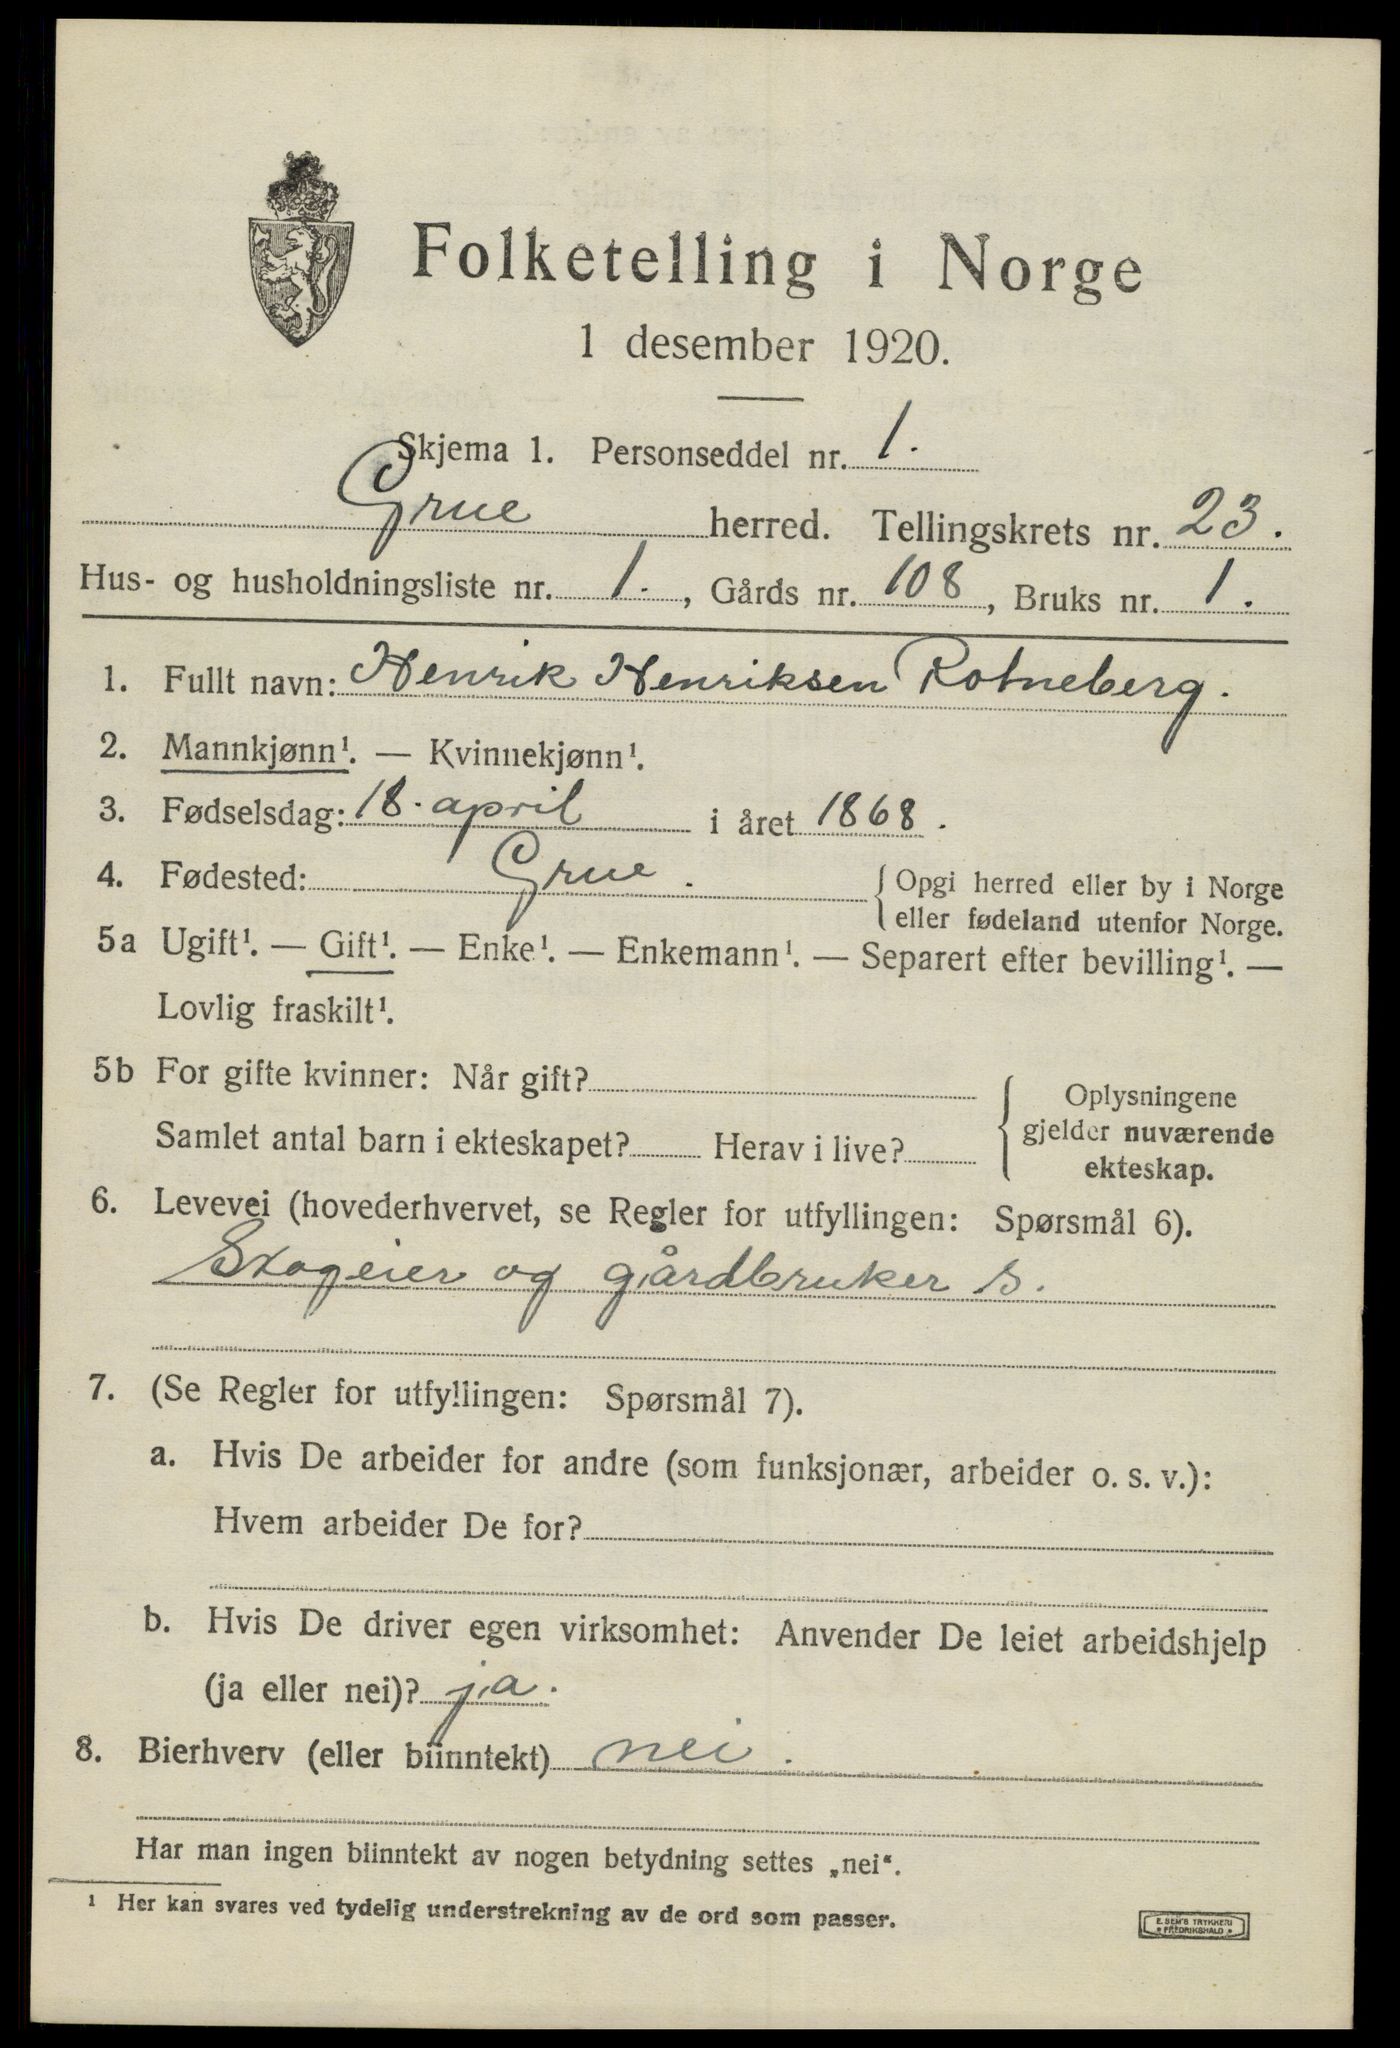 Folketelling i Norge
1 desember 1920.
Skjema 1. Personseddel nr. 1.
Grue herred. Tellingskrets nr. 23.
Hus- og husholdningsliste nr. 1., Gårds nr. 108, Bruks nr. 1.
1. Fullt navn: Henrik Henriksen Rotneberg.
2. Mannkjønn¹. — Kvinnekjønn¹.
3. Fødselsdag: 18. april i året 1868.
4. Fødested: Grue. Opgi herred eller by i Norge
eller fødeland utenfor Norge.
5a Ugift¹. — Gift¹. — Enke¹. — Enkemann¹. — Separert efter bevilling¹. —
Lovlig fraskilt¹.
5b For gifte kvinner: Når gift?
Samlet antal barn i ekteskapet? Herav i live?
Oplysningene
gjelder nuværende
ekteskap.
6. Levevei (hovederhvervet, se Regler for utfyllingen: Spørsmål 6).
Skogeier og gårdbruker s.
7. (Se Regler for utfyllingen: Spørsmål 7).
a. Hvis De arbeider for andre (som funksjonær, arbeider o. s. v.):
Hvem arbeider De for?
b. Hvis De driver egen virksomhet: Anvender De leiet arbeidshjelp
(ja eller nei)? ja.
8. Bierhverv (eller biinntekt) nei.
Har man ingen biinntekt av nogen betydning settes „nei“.
¹ Her kan svares ved tydelig understrekning av de ord som passer.
E. SEM'S TRYKKERI
• FREDRIKSHALD •